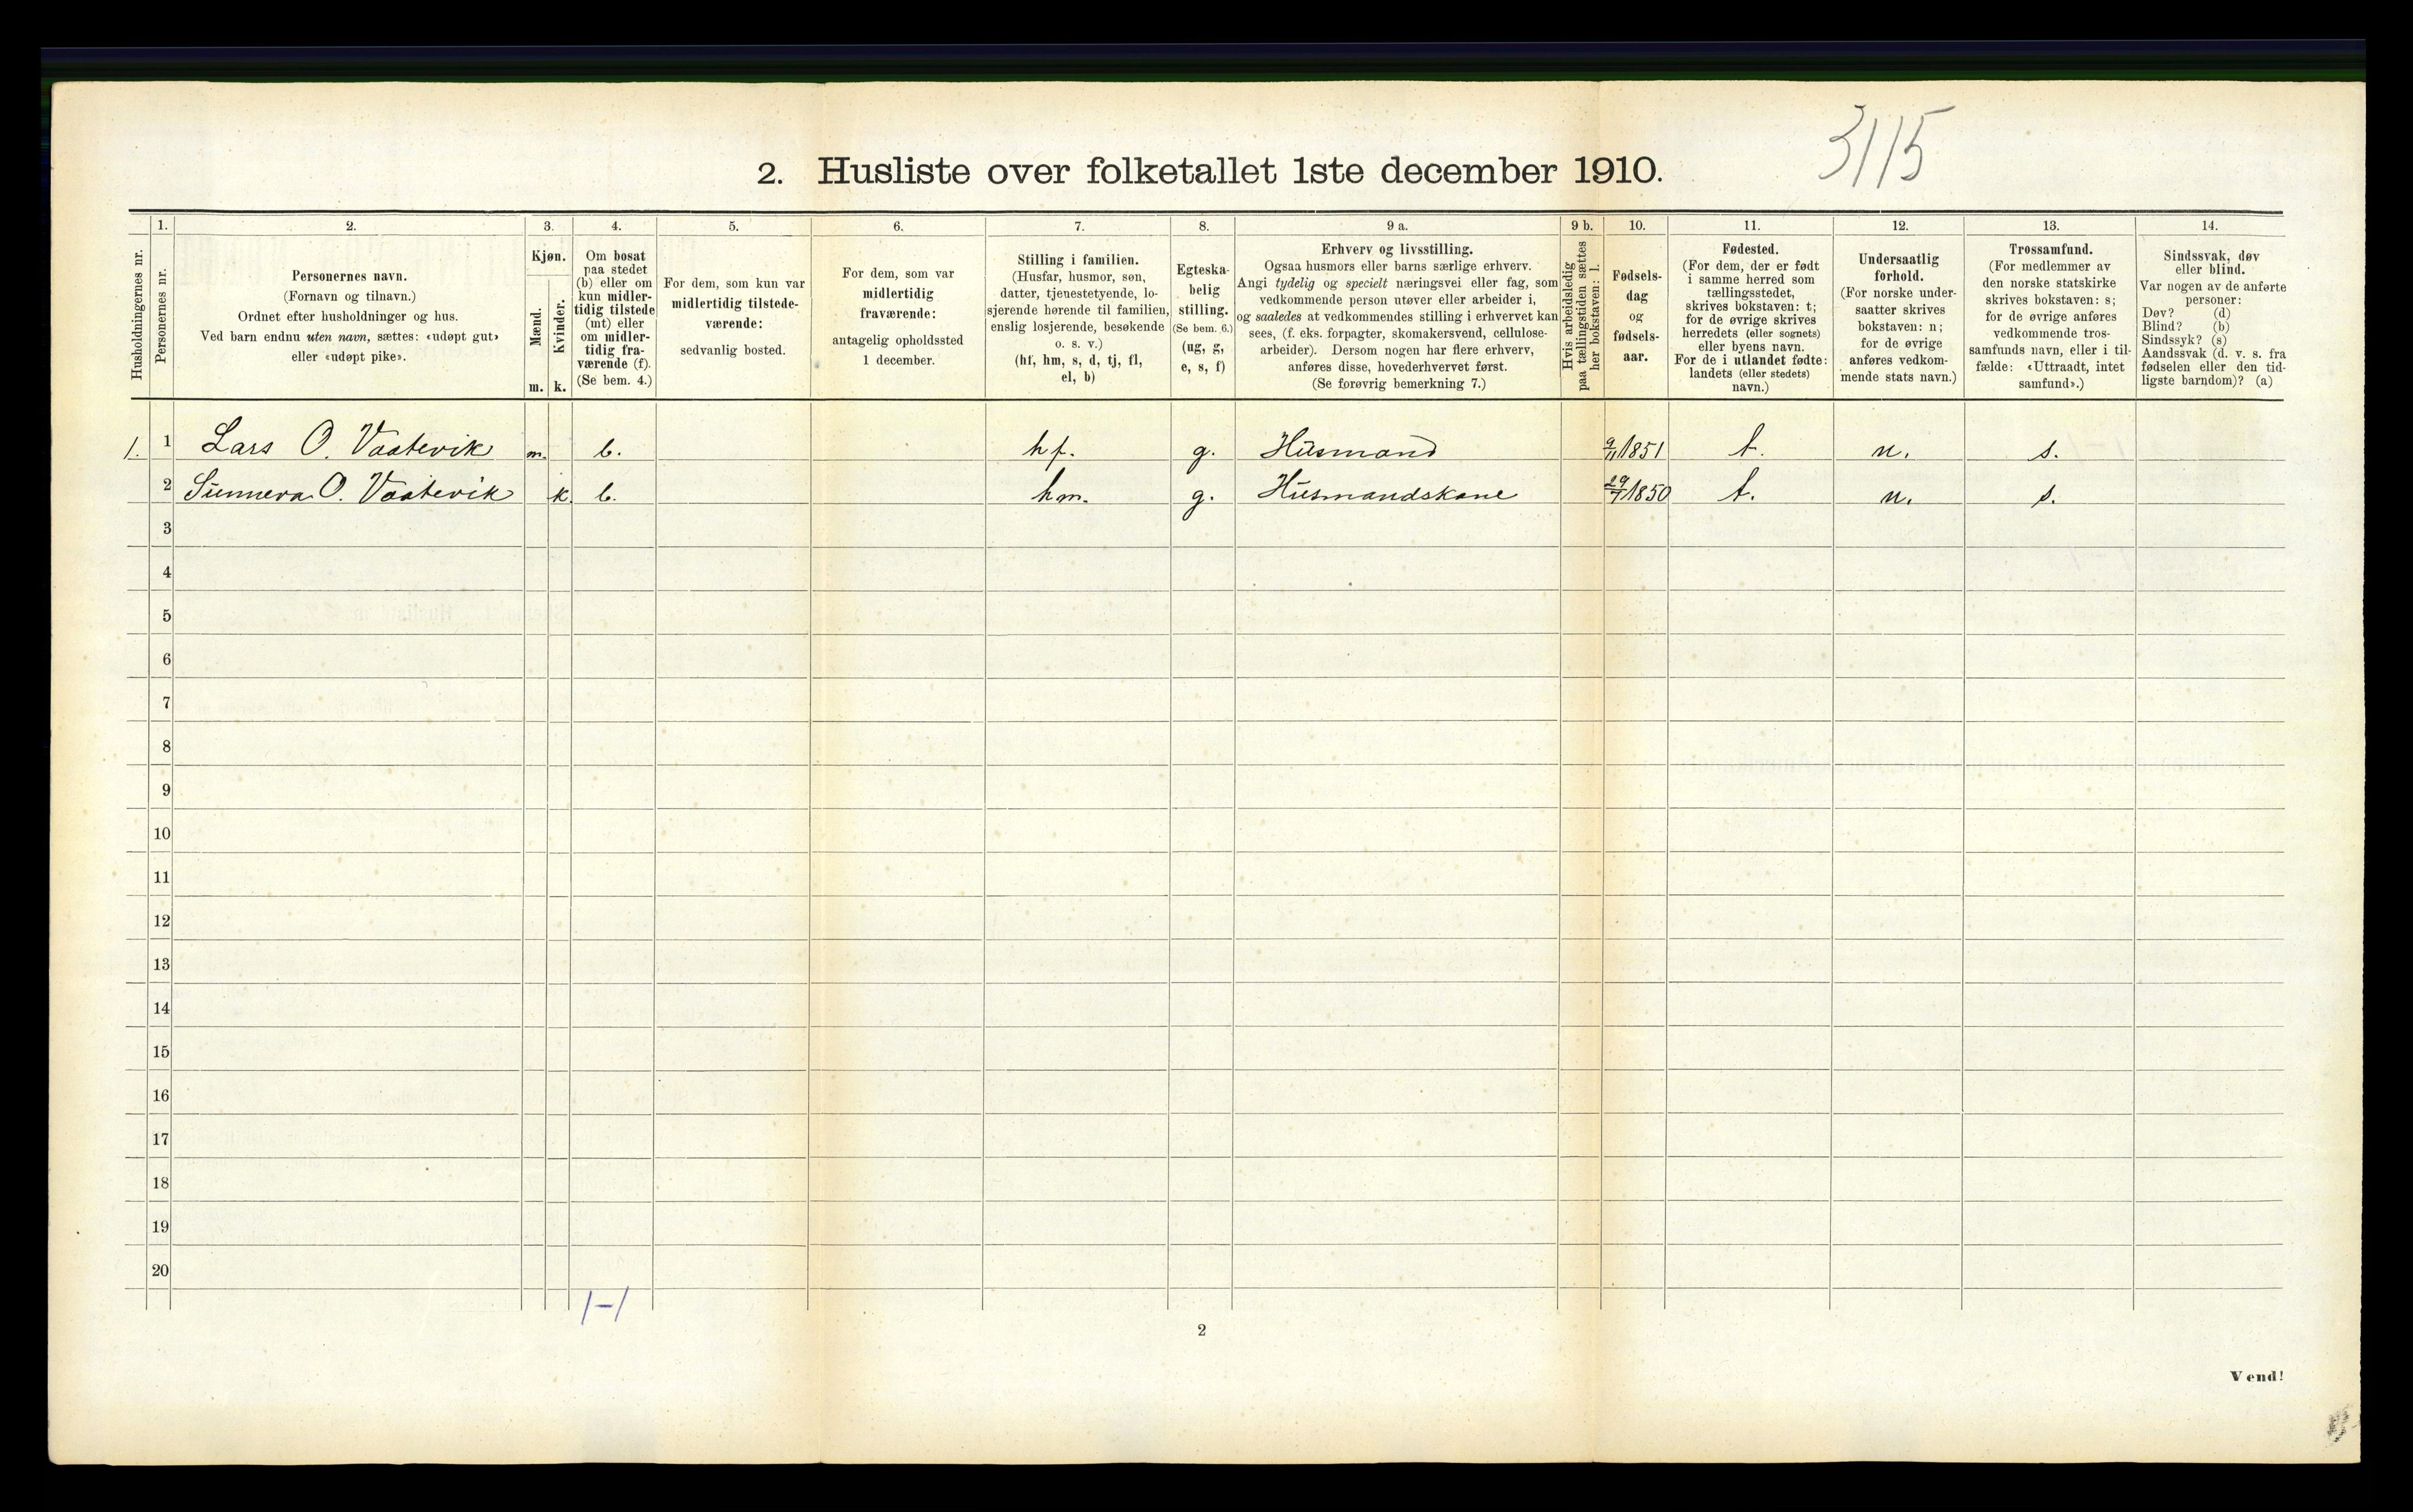 3115
2. Husliste over folketallet 1ste december 1910.
Husholdningernes nr.
1.
Personernes nr.
2.
Personernes navn.
(Fornavn og tilnavn.)
Ordnet efter husholdninger og hus.
Ved barn endnu uten navn, sættes: «udøpt gut»
eller «udøpt pike».
3.
Kjøn.
Mænd.
m.
Kvinder.
k.
4.
Om bosat
paa stedet
(b) eller om
kun midler-
tidig tilstede
(mt) eller
om midler-
tidig fra-
værende (f).
(Se bem. 4.)
5.
For dem, som kun var
midlertidig tilstede-
værende:
sedvanlig bosted.
6.
For dem, som var
midlertidig
fraværende:
antagelig opholdssted
1 december.
7.
Stilling i familien.
(Husfar, husmor, søn,
datter, tjenestetyende, lo-
sjerende hørende til familien,
enslig losjerende, besøkende
o. s. v.)
(hf, hm, s, d, tj, fl,
el, b)
8.
Egteska-
belig
stilling.
(Se bem. 6.)
(ug, g,
e, s, f)
9 a.
Erhverv og livsstilling.
Ogsaa husmors eller barns særlige erhverv.
Angi tydelig og specielt næringsvei eller fag, som
vedkommende person utøver eller arbeider i,
og saaledes at vedkommendes stilling i erhvervet kan
sees, (f. eks. forpagter, skomakersvend, cellulose-
arbeider). Dersom nogen har flere erhverv,
anføres disse, hovederhvervet først.
(Se forøvrig bemerkning 7.)
9 b.
Hvis arbeidsledig
paa tællingstiden sættes
her bokstaven: l.
10.
Fødsels-
dag
og
fødsels-
aar.
11.
Fødested.
(For dem, der er født
i samme herred som
tællingsstedet,
skrives bokstaven: t;
for de øvrige skrives
herredets (eller sognets)
eller byens navn.
For de i utlandet fødte:
landets (eller stedets)
navn.)
12.
Undersaatlig
forhold.
(For norske under-
saatter skrives
bokstaven: n;
for de øvrige
anføres vedkom-
mende stats navn.)
13.
Trossamfund.
(For medlemmer av
den norske statskirke
skrives bokstaven: s;
for de øvrige anføres
vedkommende tros-
samfunds navn, eller i til-
fælde: «Uttraadt, intet
samfund».)
14.
Sindssvak, døv
eller blind.
Var nogen av de anførte
personer:
Døv? (d)
Blind? (b)
Sindssyk? (s)
Aandssvak (d. v. s. fra
fødselen eller den tid-
ligste barndom)? (a)
1. 1 Lars O. Vaatevik m. b. hf. g. Husmand 9/11 1851 t. n. s.
2 Sunneva O. Vaatevik k. b. hm. g. Husmandskone 29/7 1850 t. n. s.
3
4
5
6
7
8
9
10
11
12
13
14
15
16
17
18
19
20
1-1
2
Vend!